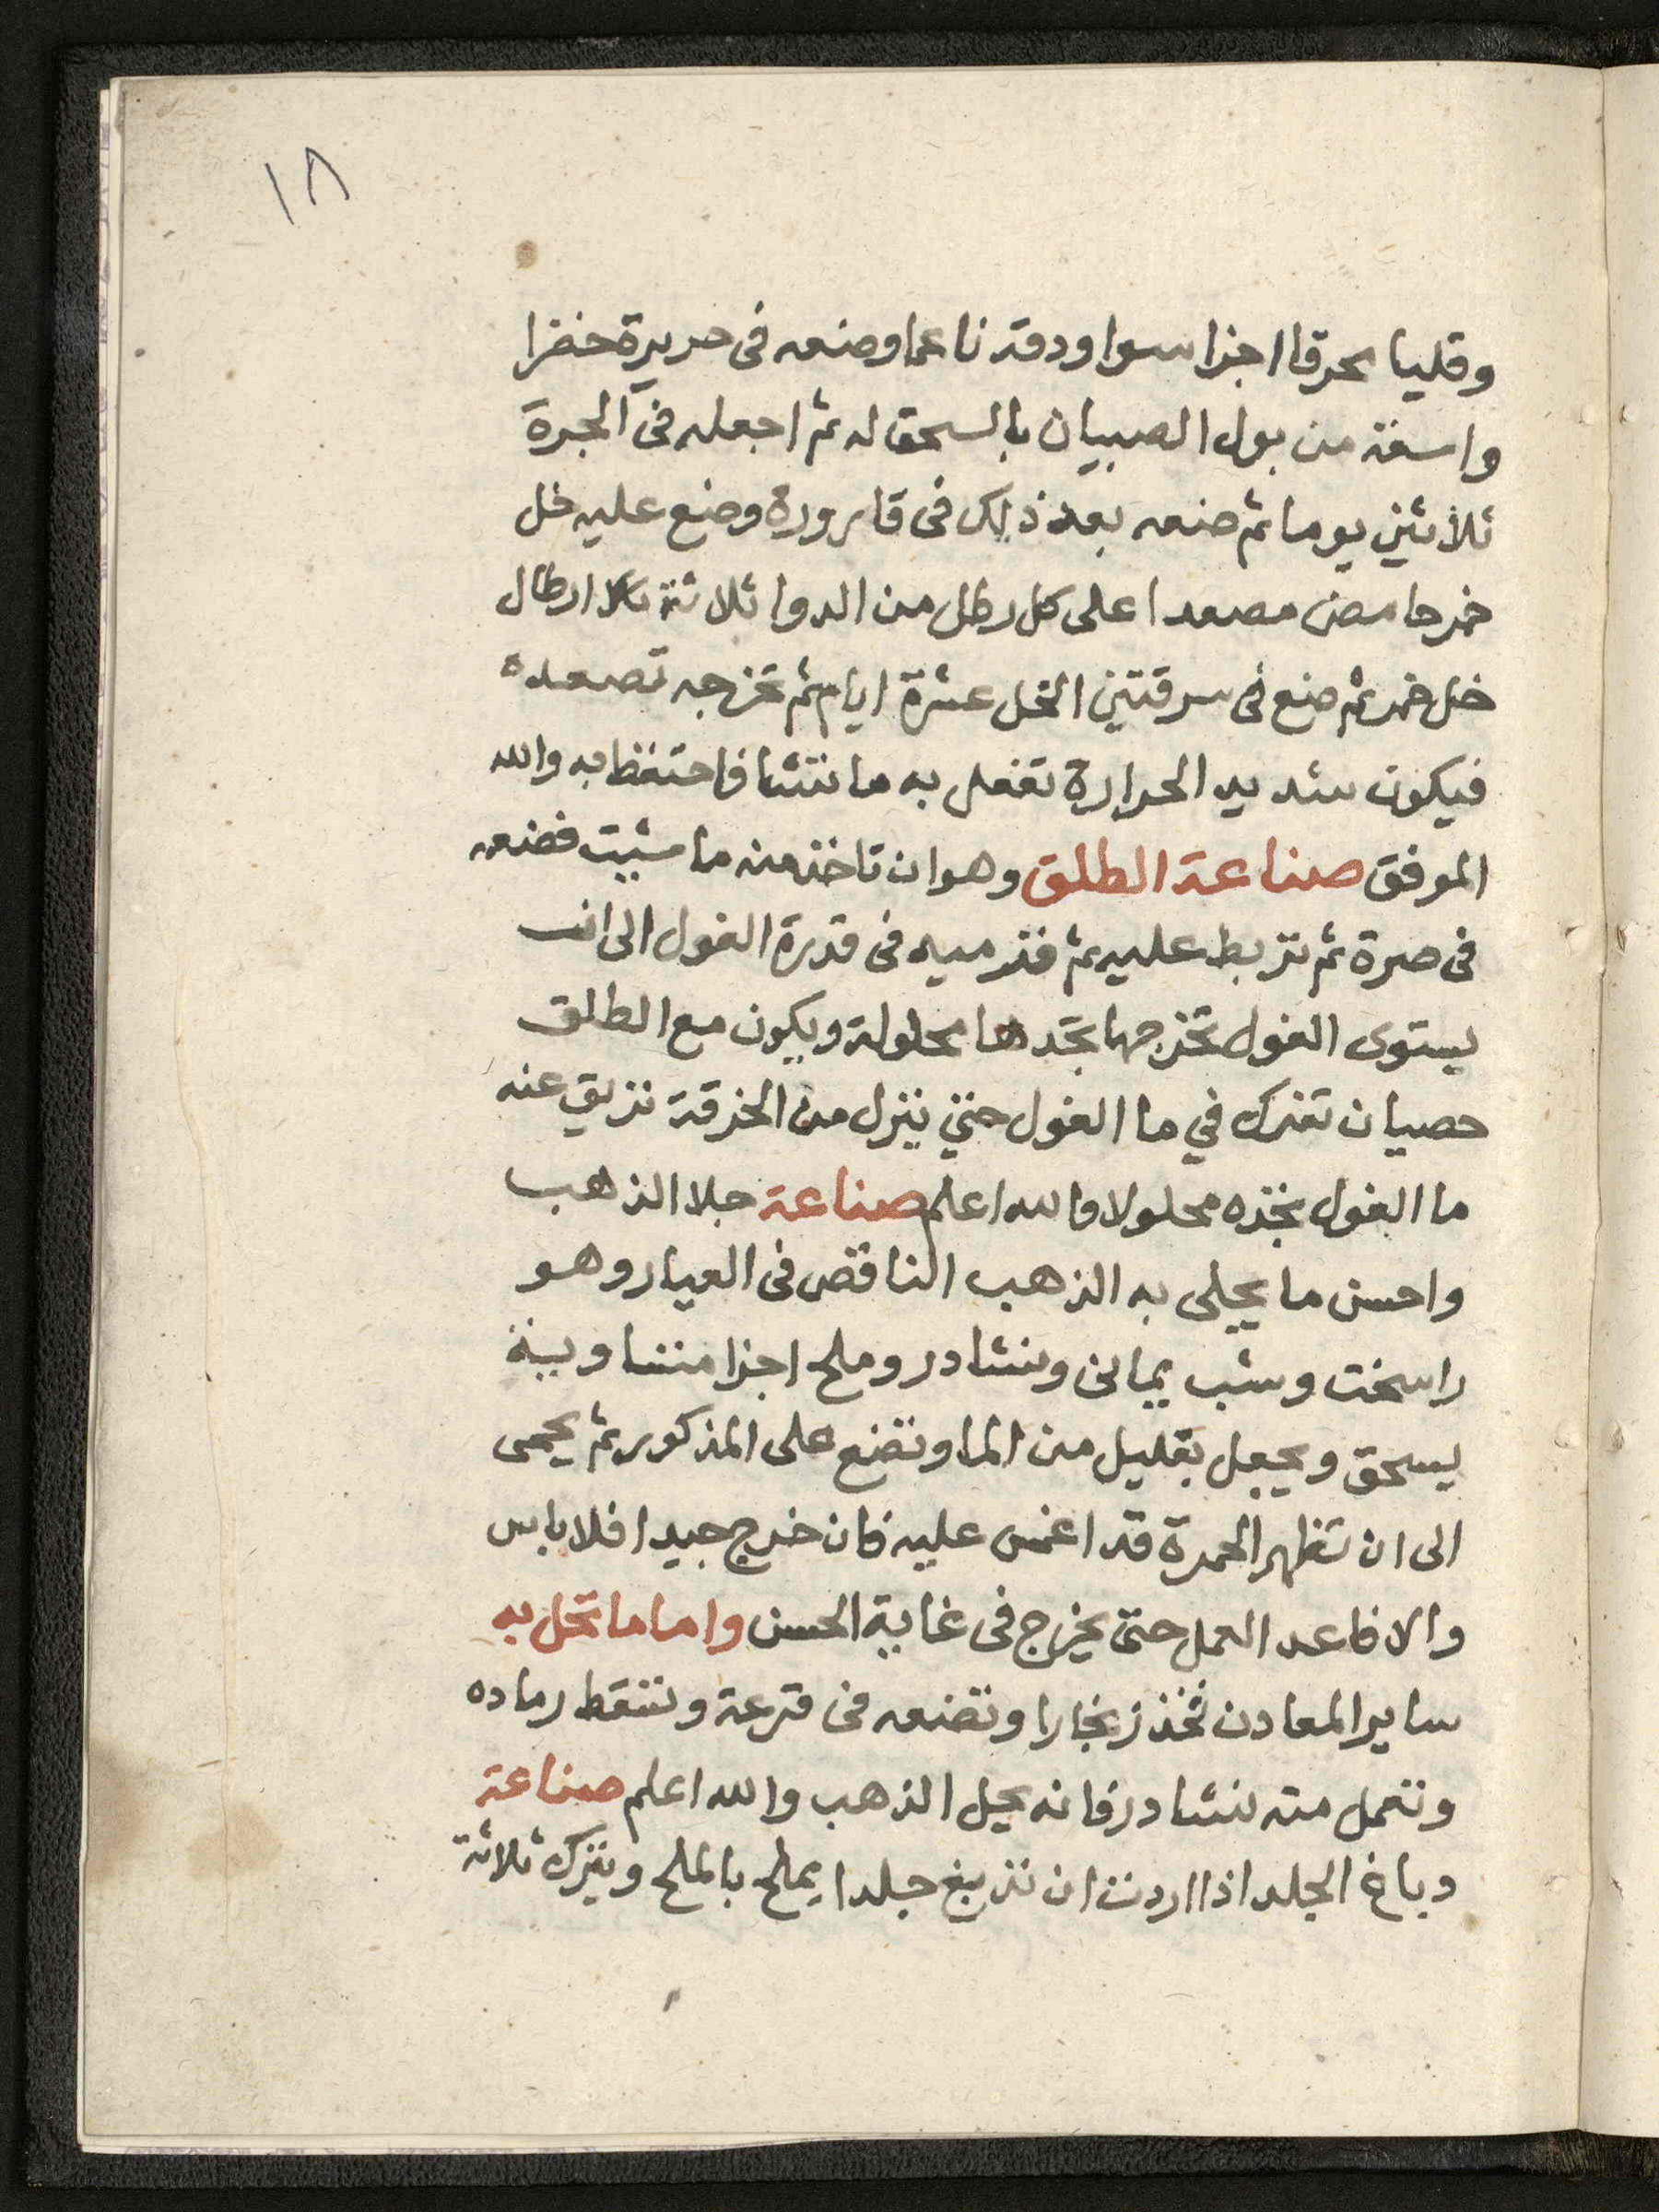 ١٨
وقليا محرقا اجزا سوا ودقه ناعما وضعه فى حريرة خضرا
واسقه من بول الصبيان بالسحق له ثم اجعله فى الجرة
ثلاثين يوما ثم ضعه بعد ذلك فى قارورة وضع عليه خل
خمر حامض مصعدا على كل رطل من الدوا ثلاثة ارطال
خل خمر ثم ضع فى سرقتين الخل عشرة ايام ثم تخرجه تصعده
فيكون شديد الحرارة تفعل به ما تشا فاحتفظ به والله
الموفق صناعة الطلق وهو ان تاخذ منه ما شيت فضعه
فى صرة ثم تربط عليه ثم فترميه فى قدرة الفول الى ان
يستوى الفول تخرجها تجدها محلولة ويكون مع الطلق
حصيان تفرك في ما الفول حتى ينزل من الخرقة تريق عنه
ما الفول تجده محلولا والله اعلم صناعة جلا الذهب
واحسن ما يجلى به الذهب الناقص فى العيار وهو
راسخت وشب يمانى ونشادر وملح اجزا متساوية
يسحق ويجعل بقليل من الما وتضع على المذكور ثم يحمى
الى ان تظهر الحمرة قد اغمس عليه فان خرج جيدا فلا باس
والا فاعد العمل حتى يخرج فى غاية الحسن واما ما تحل به
ساير المعادن تخذ زنجارا وتضعه فى قرعة وتنقط رماده
وتعمل منه نشادر فانه يحل الذهب والله اعلم صناعة
دباغ الجلد اذا اردت ان تدبغ جلدا يملح بالملح ويترك ثلاثة